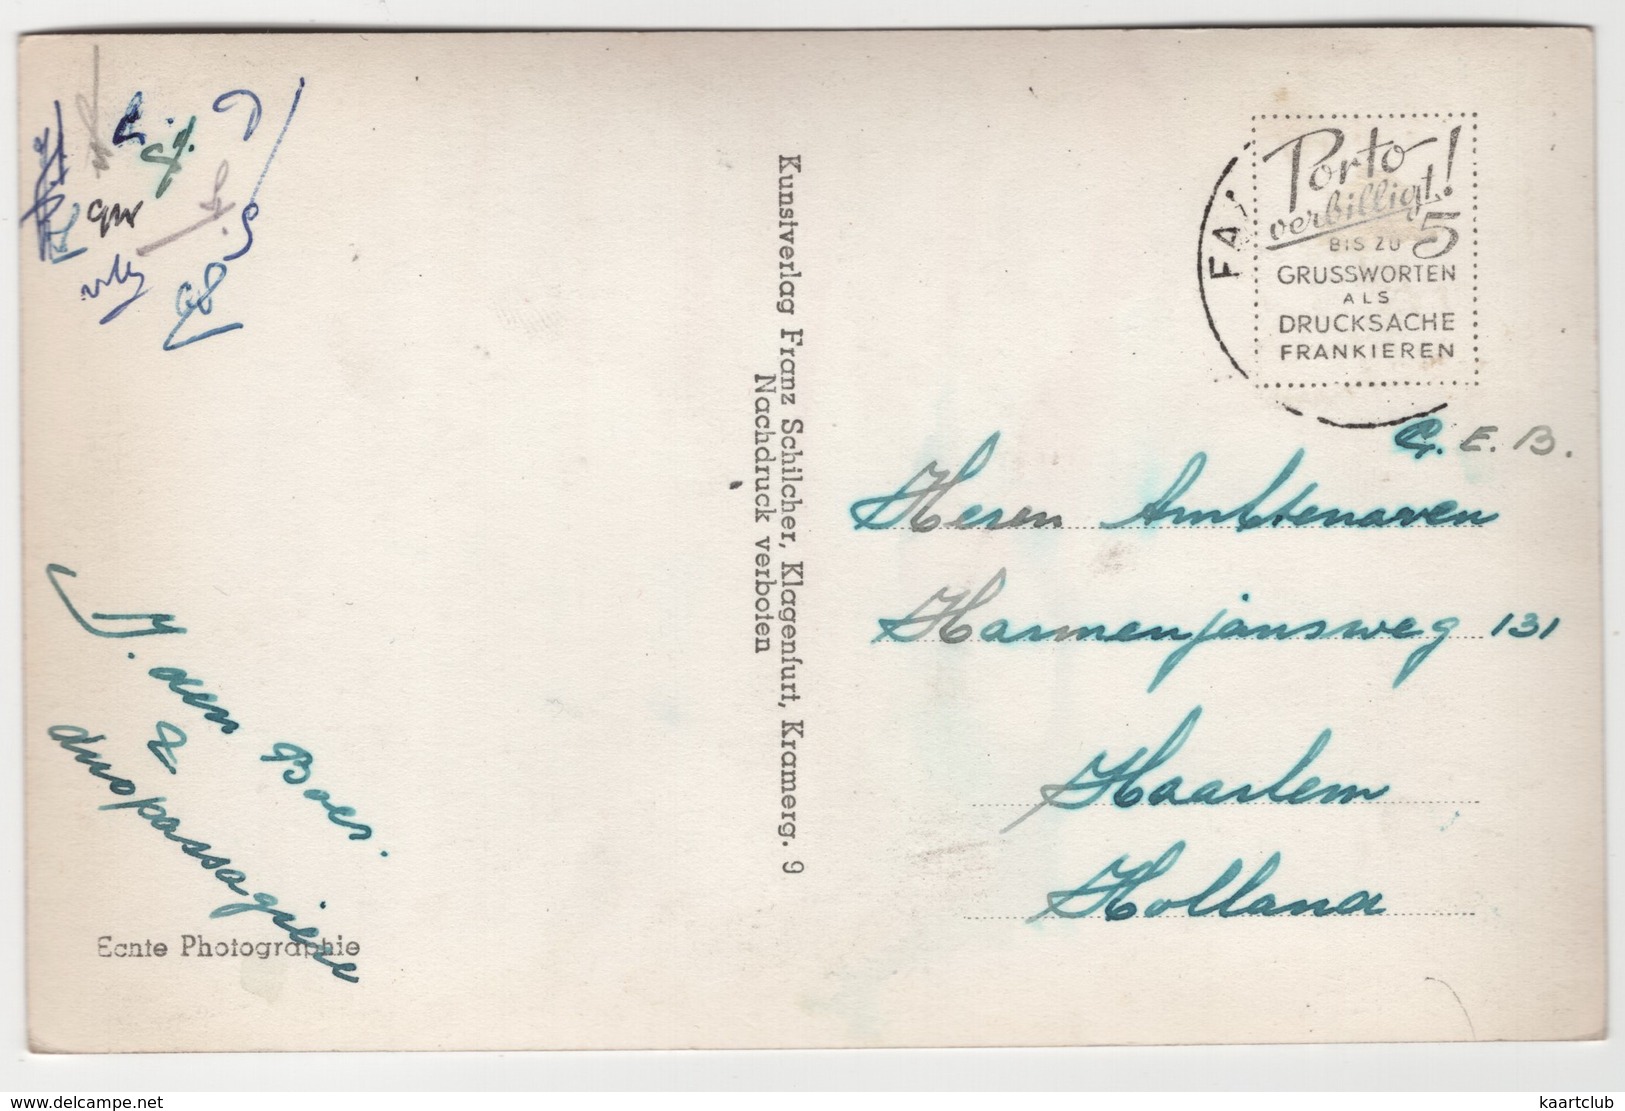 Porto
verbilligt!
BIS ZU 5
GRUSSWORTEN
ALS
DRUCKSACHE
FRANKIEREN
FA
G.E.B.
Heren Ambtenaren
Harmenjansweg 131
Haarlem
Holland
Kunstverlag Franz Schilcher, Klagenfurt, Kramerg. 9
Nachdruck verboten
J. den Boer.
&
duopassagiere
Echte Photographie
www.delcampe.net
kaartclub